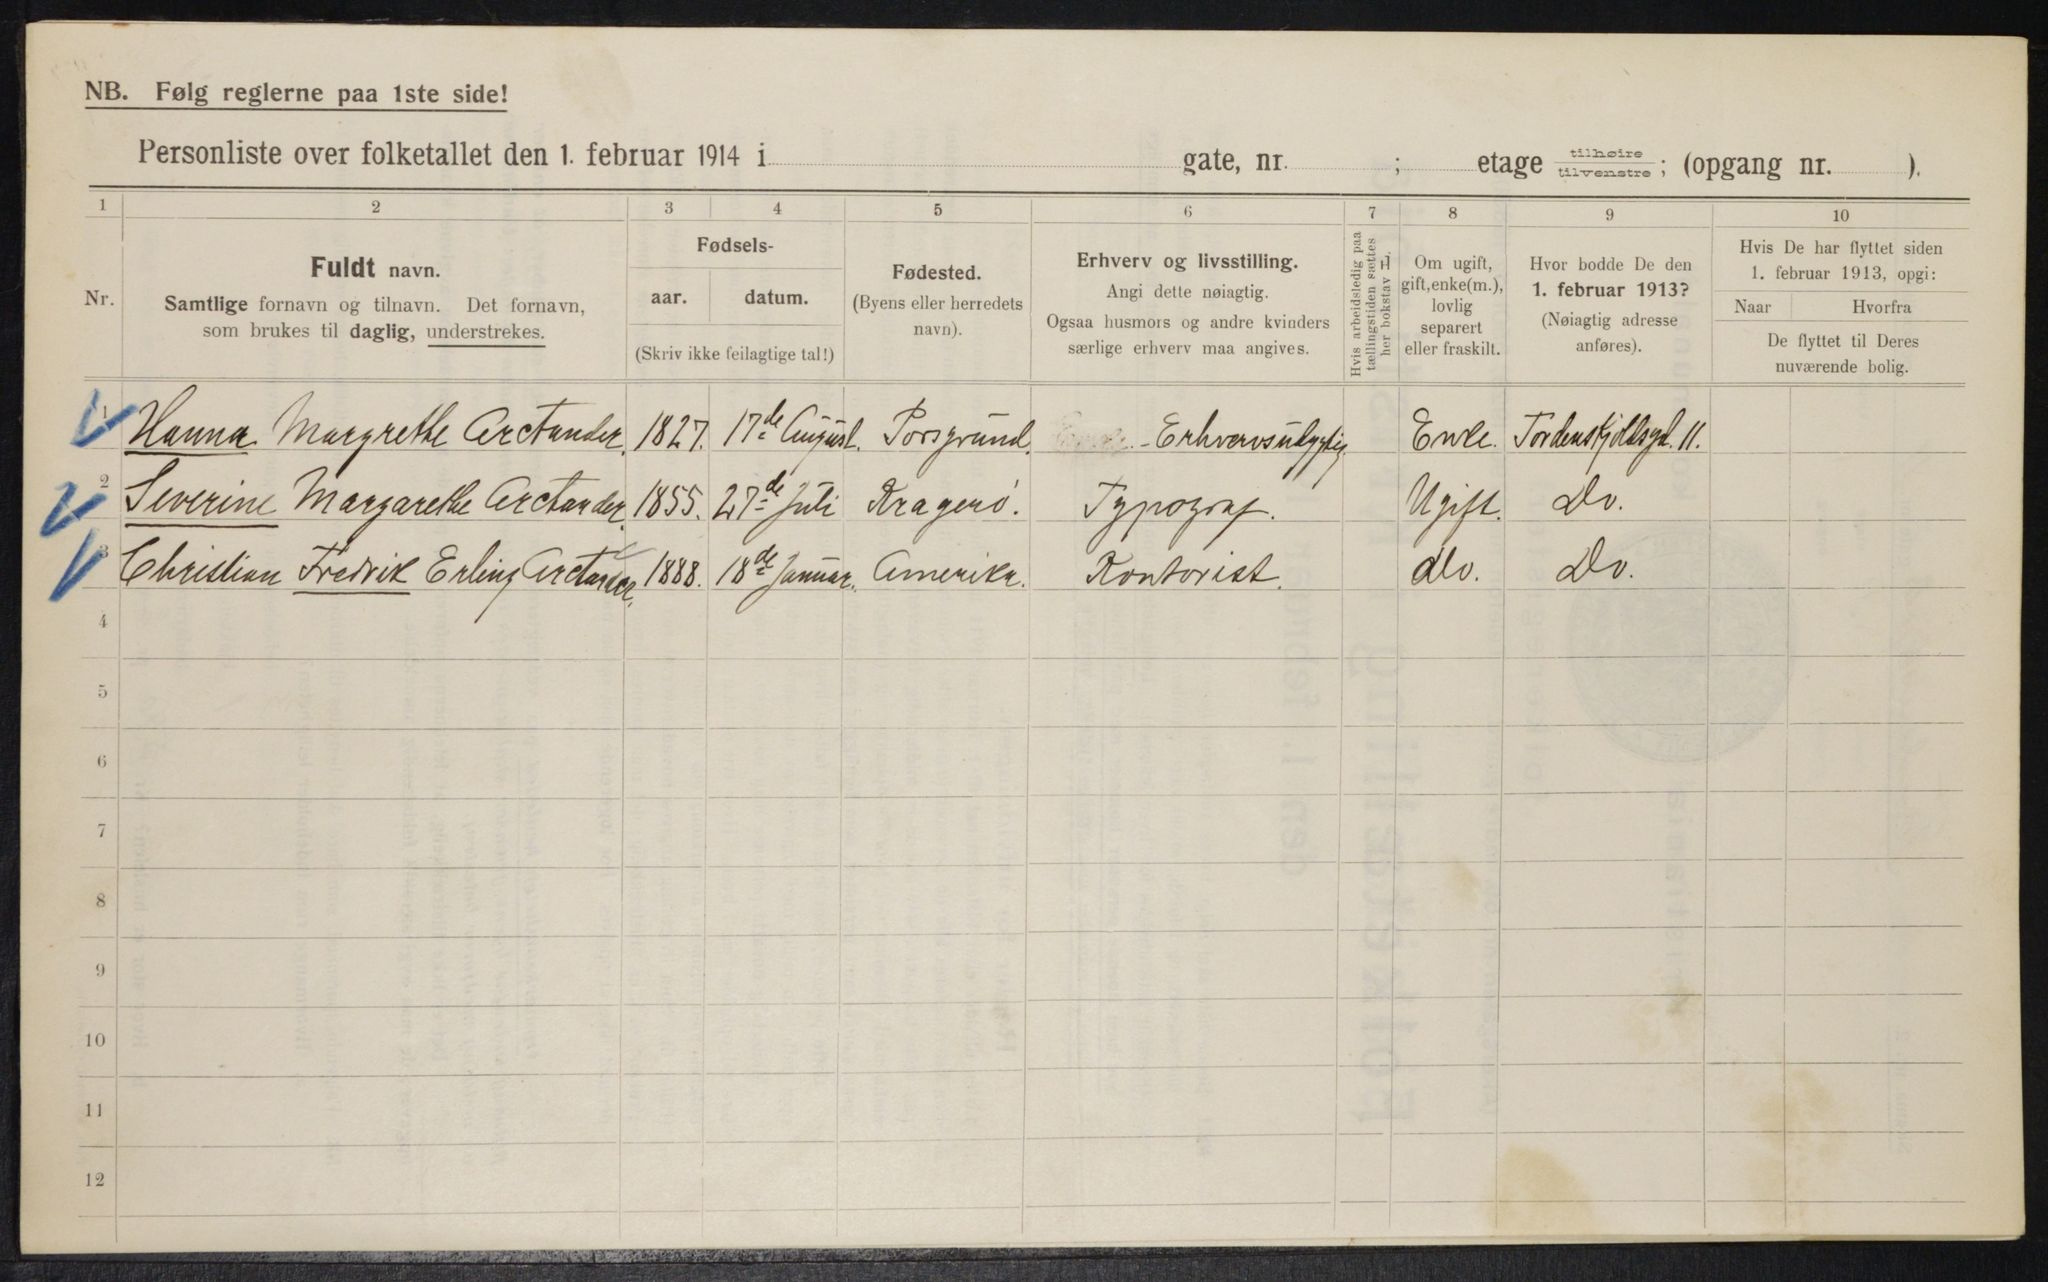 NB. Følg reglerne paa 1ste side!
Personliste over folketallet den 1. februar 1914 i gate, nr. ; etage tilhøire tilvenstre ; (opgang nr. ).
1 2 3 4 5 6 7 8 9 10
Nr.
Fuldt navn.
Samtlige fornavn og tilnavn. Det fornavn,
som brukes til daglig, understrekes.
Fødsels-
aar. datum.
(Skriv ikke feilagtige tal!)
Fødested.
(Byens eller herredets
navn).
Erhverv og livsstilling.
Angi dette nøiagtig.
Ogsaa husmors og andre kvinders
særlige erhverv maa angives.
Hvis arbeidsledig paa
tællingstiden sættes
her bokstav L.
Om ugift,
gift, enke(m.),
lovlig
separert
eller fraskilt.
Hvor bodde De den
1. februar 1913?
(Nøiagtig adresse
anføres).
Hvis De har flyttet siden
1. februar 1913, opgi:
Naar Hvorfra
De flyttet til Deres
nuværende bolig.
1 Hanna Margrethe Arctander. 1827. 17de August. Porsgrund. - Erhvervsudygtig Enke. Tordenskjoldsgd. 11.
2 Severine Margarethe Arctander. 1855. 27de Juli Kragerö. Typograf. Ugift. Do.
3 Christian Fredrik Erling Arctander. 1888. 18de Januar. Amerika. Kontorist. do. Do.
4
5
6
7
8
9
10
11
12